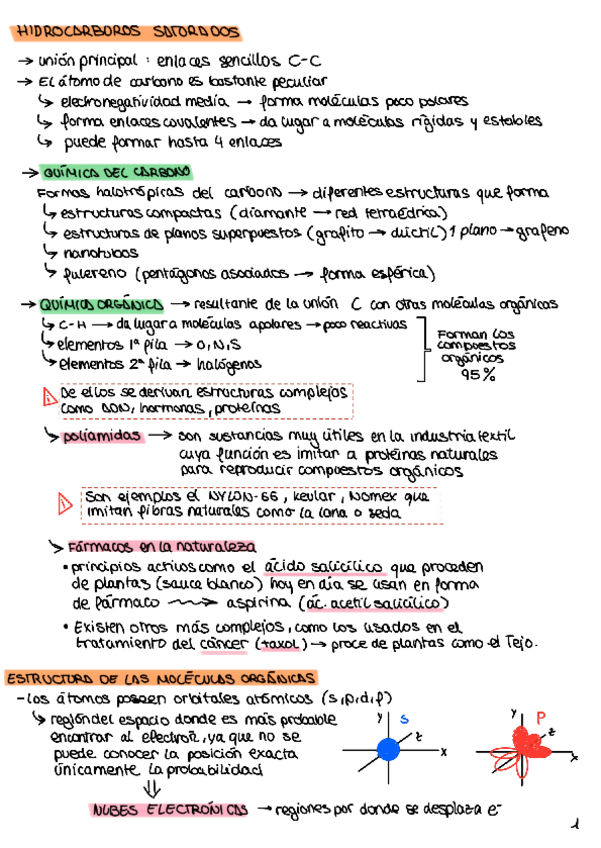 HIDROCARBUROS SATURADOS
→ unión principal : enlaces sencillos C-C
→ El átomo de carbono es bastante peculiar
↳ electronegatividad media → forma moléculas poco polares
↳ forma enlaces covalentes → da lugar a moléculas rígidas y estables
↳ puede formar hasta 4 enlaces
→ QUÍMICA DEL CARBONO
Formas halotrópicas del carbono → diferentes estructuras que forma
↳ estructuras compactas (diamante → red tetraédrica)
↳ estructuras de planos superpuestos (grafito → dúctil) 1 plano → grafeno
↳ nanotubos
↳ fulereno (pentágonos asociados → forma esférica)
→ QUÍMICA ORGÁNICA → resultante de la unión C con otras moléculas orgánicas
↳ C-H → da lugar a moléculas apolares → poco reactivas
↳ elementos 1ª fila → O, N, S
↳ elementos 2ª fila → halógenos
Forman los
compuestos
orgánicos
95%
De ellos se derivan estructuras complejas
como ADN, hormonas, proteínas
↳ poliamidas → son sustancias muy útiles en la industria textil
cuya función es imitar a proteínas naturales
para reproducir compuestos orgánicos
Son ejemplos el NYLON-66, kevlar, Nomex que
imitan fibras naturales como la lana o seda
↳ Fármacos en la naturaleza
• principios activos como el ácido salicílico que proceden
de plantas (sauce blanco) hoy en día se usan en forma
de fármaco → aspirina (ác. acetil salicílico)
• Existen otros más complejos, como los usados en el
tratamiento del cáncer (taxol) → proce de plantas como el Tejo.
ESTRUCTURA DE LAS MOLÉCULAS ORGÁNICAS
- los átomos poseen orbitales atómicos (s, p, d, f)
↳ región del espacio donde es más probable
encontrar al electrón, ya que no se
puede conocer la posición exacta
únicamente la probabilidad
y S
z
x
y P
z
x
⇓
NUBES ELECTRÓNICAS → regiones por donde se desplaza e-
1